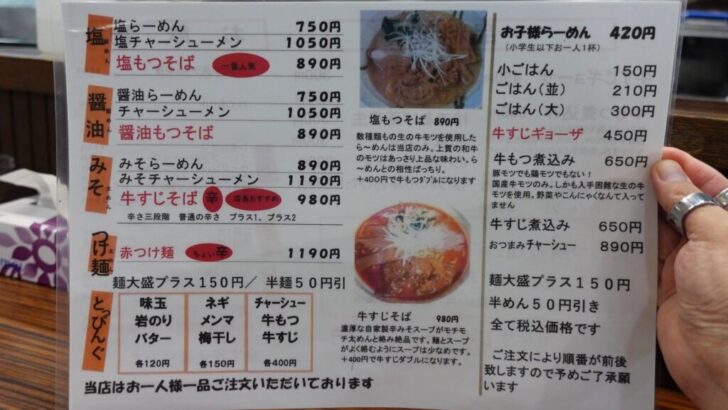 塩 らーめん
塩らーめん 750円
塩チャーシューメン 1050円
塩もつそば 一番人気 890円
醤油
醤油らーめん 750円
チャーシューメン 1050円
醤油もつそば 890円
みそ らーめん
みそらーめん 890円
みそチャーシューメン 1190円
牛すじそば 辛 店長おすすめ 980円
辛さ三段階 普通の辛さ プラス1、プラス2
つけ麺
赤つけ麺 ちょい辛 1190円
麺大盛プラス150円/ 半麺50円引
とっぴんぐ
味玉
岩のり
バター
各120円
ネギ
メンマ
梅干し
各150円
チャーシュー
牛もつ
牛すじ
各400円
当店はお一人様一品ご注文いただいております
塩もつそば 890円
数種類もの生の牛モツを使用した
ら~めんは当店のみ。上質の和牛
のモツはあっさり上品な味わい。ら
~めんとの相性ばっちり。
+400円で牛もつダブルになります
牛すじそば 980円
濃厚な自家製辛みそスープがモチモ
チ太めんと絡み絶品です。麺とスー
プがよく絡むようにスープは少なめです。
+400円で牛すじダブルになります。
お子様らーめん 420円
(小学生以下お一人1杯)
小ごはん 150円
ごはん(並) 210円
ごはん(大) 300円
牛すじギョーザ 450円
牛もつ煮込み 650円
豚モツでも鶏モツでもない!
国産牛モツのみ。しかも入手困難な生の牛
モツを使用。野菜やこんにゃくなんて入って
ません
牛すじ煮込み 650円
おつまみチャーシュー 890円
麺大盛プラス150円
半めん50円引き
全て税込価格です
ご注文により順番が前後
致しますので予めご了承願
います